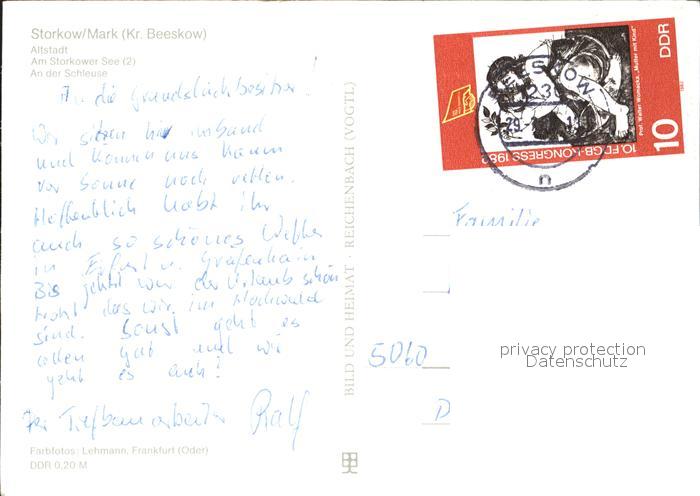 Storkow/Mark (Kr. Beeskow)
Altstadt
Am Storkower See (2)
An der Schleuse
An die Grundstücksbesitzer!
Wir sitzen hier
und können uns kaum
vor Sonne noch retten.
Hoffentlich habt ihr
auch so schönes Wetter
in Erfurt u. Gräfenhain
Bis jetzt war der Urlaub schön
trotz das wir im Hochwald
sind. Sonst geht es
allen gut und wie
geht es euch!
Der Tiefbauarbeiter Ralf
Farbfotos: Lehmann, Frankfurt (Oder)
DDR 0,20 M
BILD UND HEIMAT · REICHENBACH (VOGTL)
10. FDGB-KONGRESS 1982
Prof. Walter Womacka, „Mutter mit Kind"
DDR
10
Familie
5060
D
privacy protection
Datenschutz